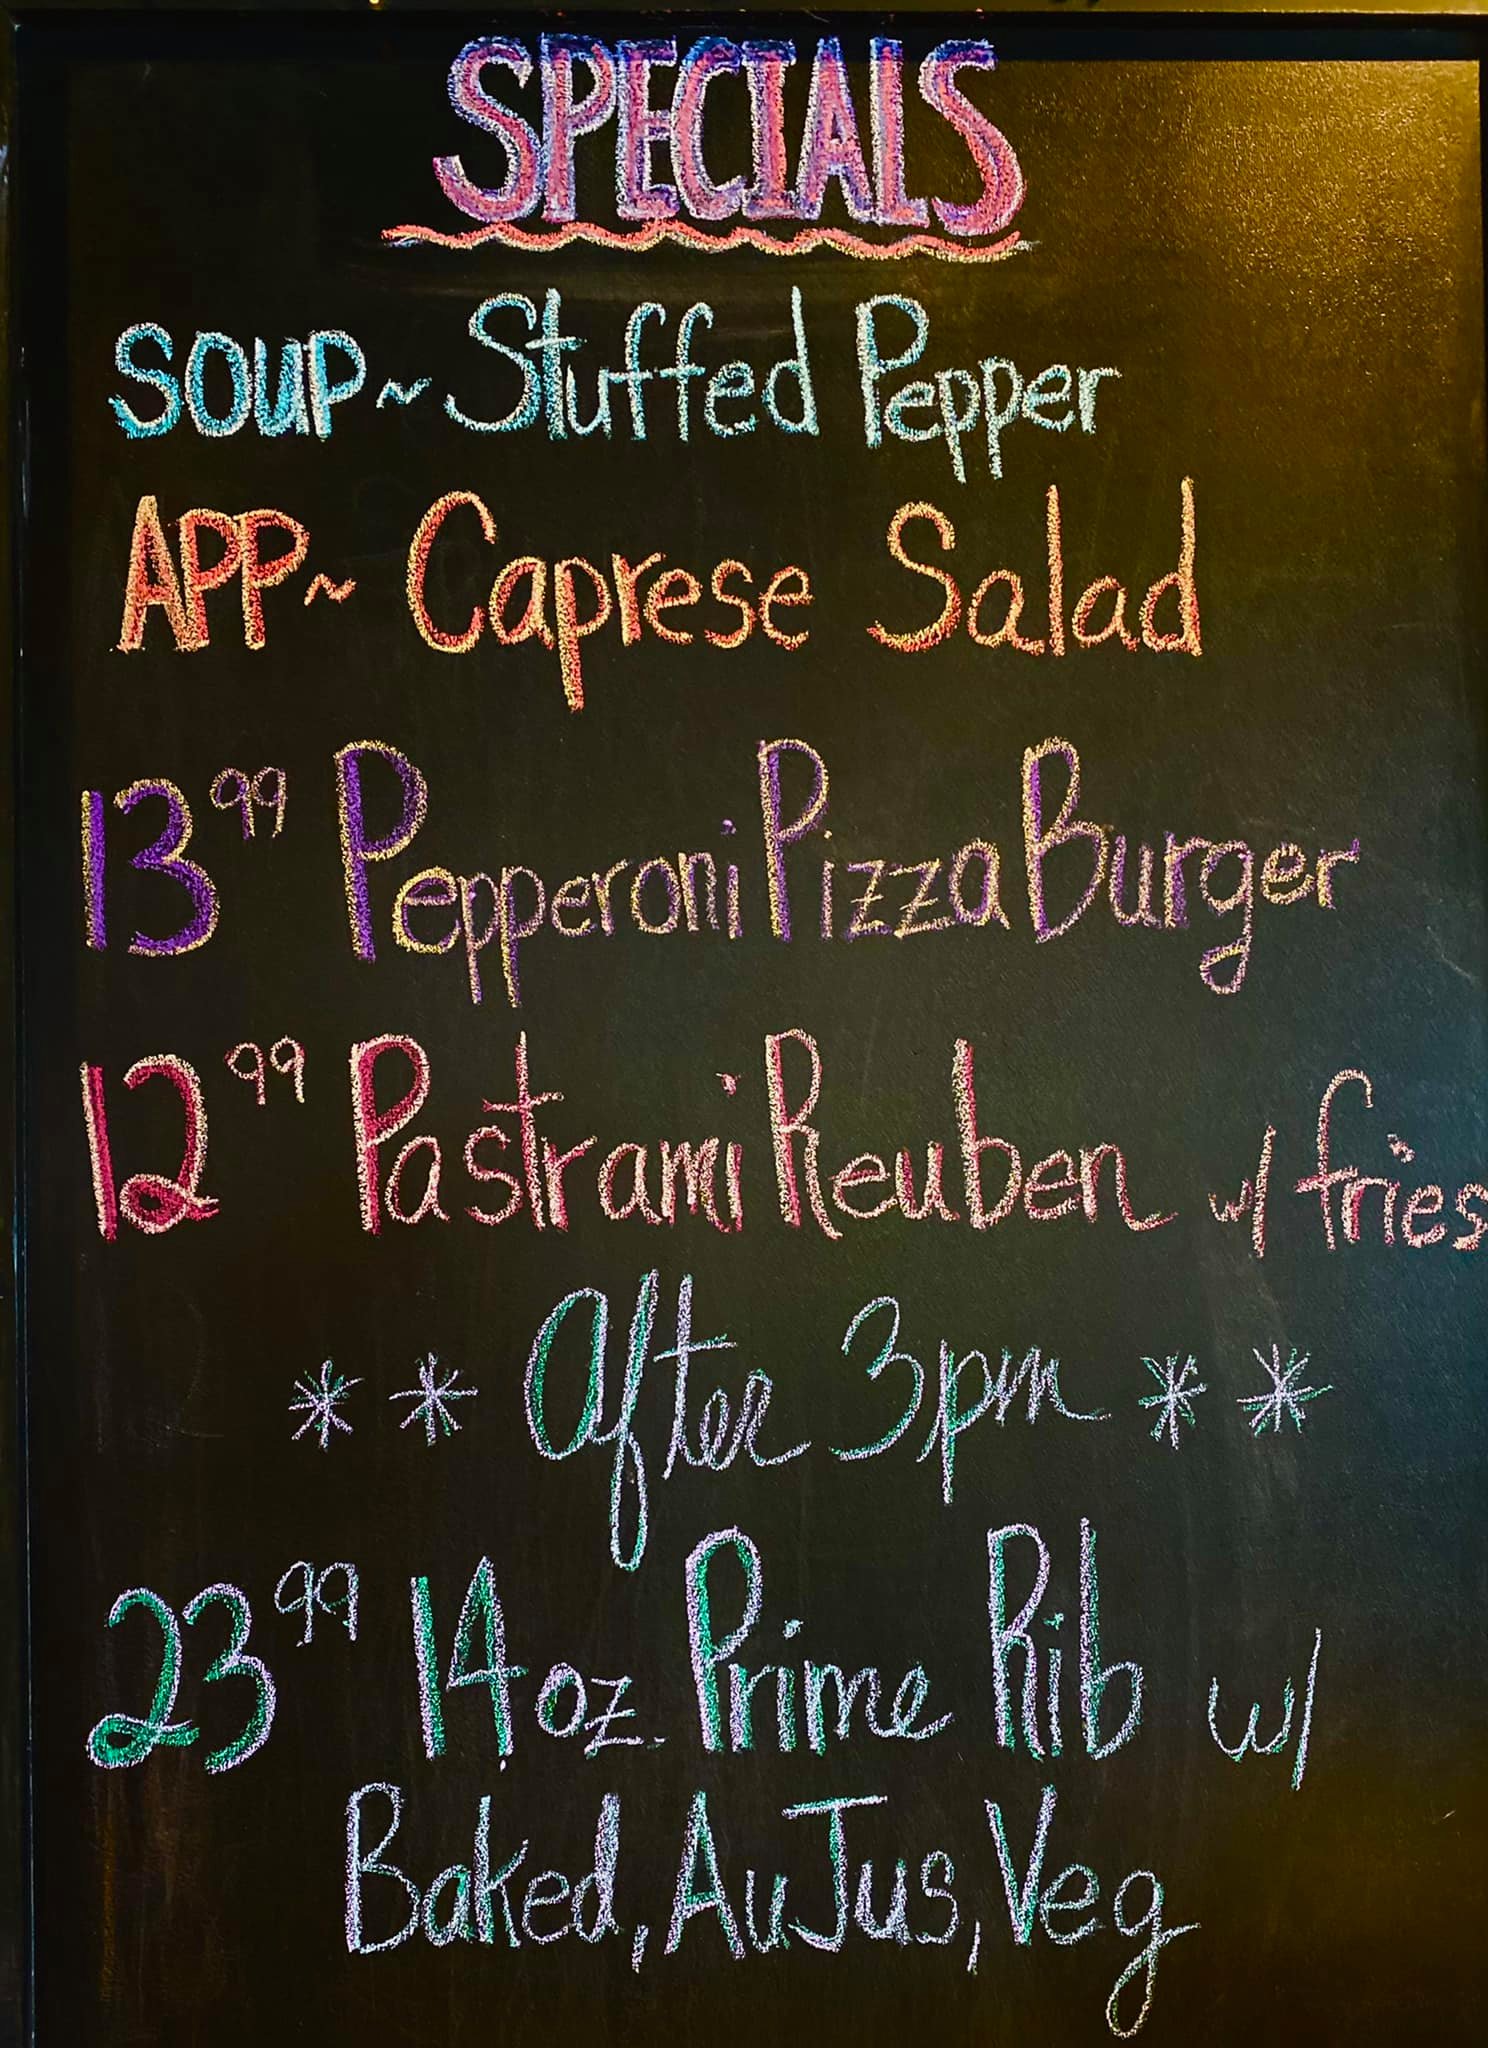 SPECIALS
SOUP~ Stuffed Pepper
APP~ Caprese Salad
13 99 Pepperoni Pizza Burger
12 99 Pastrami Reuben w/ fries
** After 3pm **
23 99 14 oz. Prime Rib w/
Baked, Au Jus, Veg